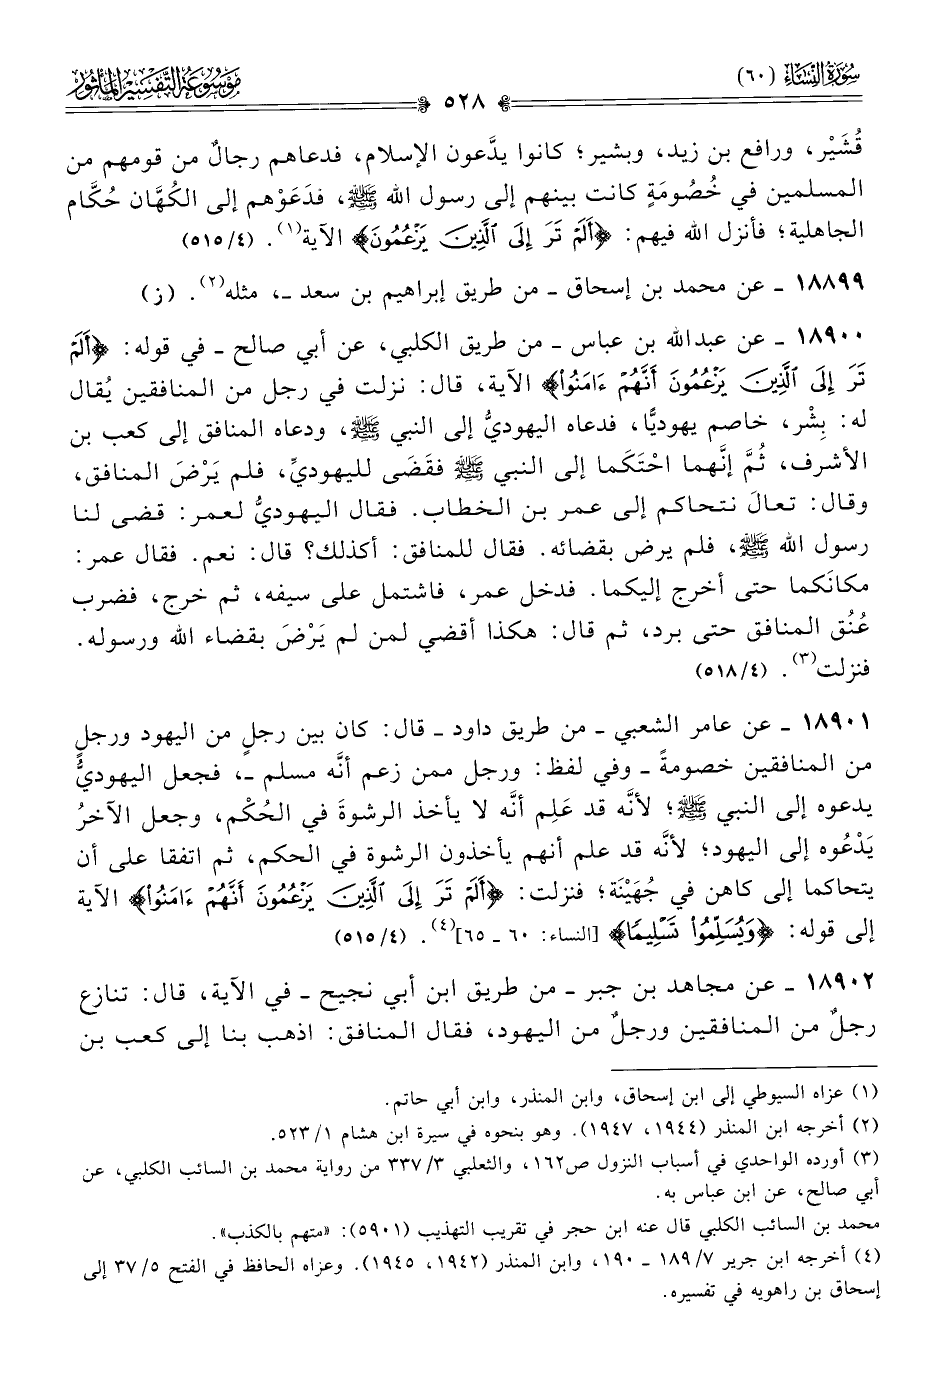 سورة النساء (٦٠)
٥٢٨
موسوعة التفسير المأثور
قُشَيْر، ورافع بن زيد، وبشير؛ كانوا يدَّعون الإسلام، فدعاهم رجالٌ من قومهم من
المسلمين في خُصُومَةٍ كانت بينهم إلى رسول الله ﷺ، فدَعَوْهم إلى الكُهَّان حُكَّام
الجاهلية؛ فأنزل الله فيهم: ﴿أَلَمْ تَرَ إِلَى ٱلَّذِينَ يَزْعُمُونَ﴾ الآية(١). (٥١٥/٤)
١٨٨٩٩ ـ عن محمد بن إسحاق ـ من طريق إبراهيم بن سعد ـ، مثله(٢). (ز)
١٨٩٠٠ ـ عن عبدالله بن عباس ـ من طريق الكلبي، عن أبي صالح ـ في قوله: ﴿أَلَمْ
تَرَ إِلَى ٱلَّذِينَ يَزْعُمُونَ أَنَّهُمْ ءَامَنُوا۟﴾ الآية، قال: نزلت في رجل من المنافقين يُقال
له: بِشْر، خاصم يهوديًّا، فدعاه اليهوديُّ إلى النبي ﷺ، ودعاه المنافق إلى كعب بن
الأشرف، ثُمَّ إنَّهما احْتَكَما إلى النبي ﷺ فقَضَى لليهوديِّ، فلم يَرْضَ المنافق،
وقال: تعالَ نتحاكم إلى عمر بن الخطاب. فقال اليهوديُّ لعمر: قضى لنا
رسول الله ﷺ، فلم يرض بقضائه. فقال للمنافق: أكذلك؟ قال: نعم. فقال عمر:
مكانَكما حتى أخرج إليكما. فدخل عمر، فاشتمل على سيفه، ثم خرج، فضرب
عُنُق المنافق حتى برد، ثم قال: هكذا أقضي لمن لم يَرْضَ بقضاء الله ورسوله.
فنزلت(٣). (٥١٨/٤)
١٨٩٠١ ـ عن عامر الشعبي ـ من طريق داود ـ قال: كان بين رجلٍ من اليهود ورجلٍ
من المنافقين خصومةً ـ وفي لفظ: ورجل ممن زعم أنَّه مسلم ـ، فجعل اليهوديُّ
يدعوه إلى النبي ﷺ؛ لأنَّه قد عَلِم أنَّه لا يأخذ الرشوةَ في الحُكْم، وجعل الآخرُ
يَدْعُوه إلى اليهود؛ لأنَّه قد علم أنهم يأخذون الرشوة في الحكم، ثم اتفقا على أن
يتحاكما إلى كاهن في جُهَيْنَة؛ فنزلت: ﴿أَلَمْ تَرَ إِلَى ٱلَّذِينَ يَزْعُمُونَ أَنَّهُمْ ءَامَنُوا۟﴾ الآية
إلى قوله: ﴿وَيُسَلِّمُوا۟ تَسْلِيمًا﴾ [النساء: ٦٠ ـ ٦٥](٤). (٥١٥/٤)
١٨٩٠٢ ـ عن مجاهد بن جبر ـ من طريق ابن أبي نجيح ـ في الآية، قال: تنازع
رجلٌ من المنافقين ورجلٌ من اليهود، فقال المنافق: اذهب بنا إلى كعب بن
(١) عزاه السيوطي إلى ابن إسحاق، وابن المنذر، وابن أبي حاتم.
(٢) أخرجه ابن المنذر (١٩٤٤، ١٩٤٧). وهو بنحوه في سيرة ابن هشام ٥٢٣/١.
(٣) أورده الواحدي في أسباب النزول ص١٦٢، والثعلبي ٣٣٧/٣ من رواية محمد بن السائب الكلبي، عن
أبي صالح، عن ابن عباس به.
محمد بن السائب الكلبي قال عنه ابن حجر في تقريب التهذيب (٥٩٠١): «متهم بالكذب».
(٤) أخرجه ابن جرير ١٨٩/٧ ـ ١٩٠، وابن المنذر (١٩٤٢، ١٩٤٥). وعزاه الحافظ في الفتح ٣٧/٥ إلى
إسحاق بن راهويه في تفسيره.